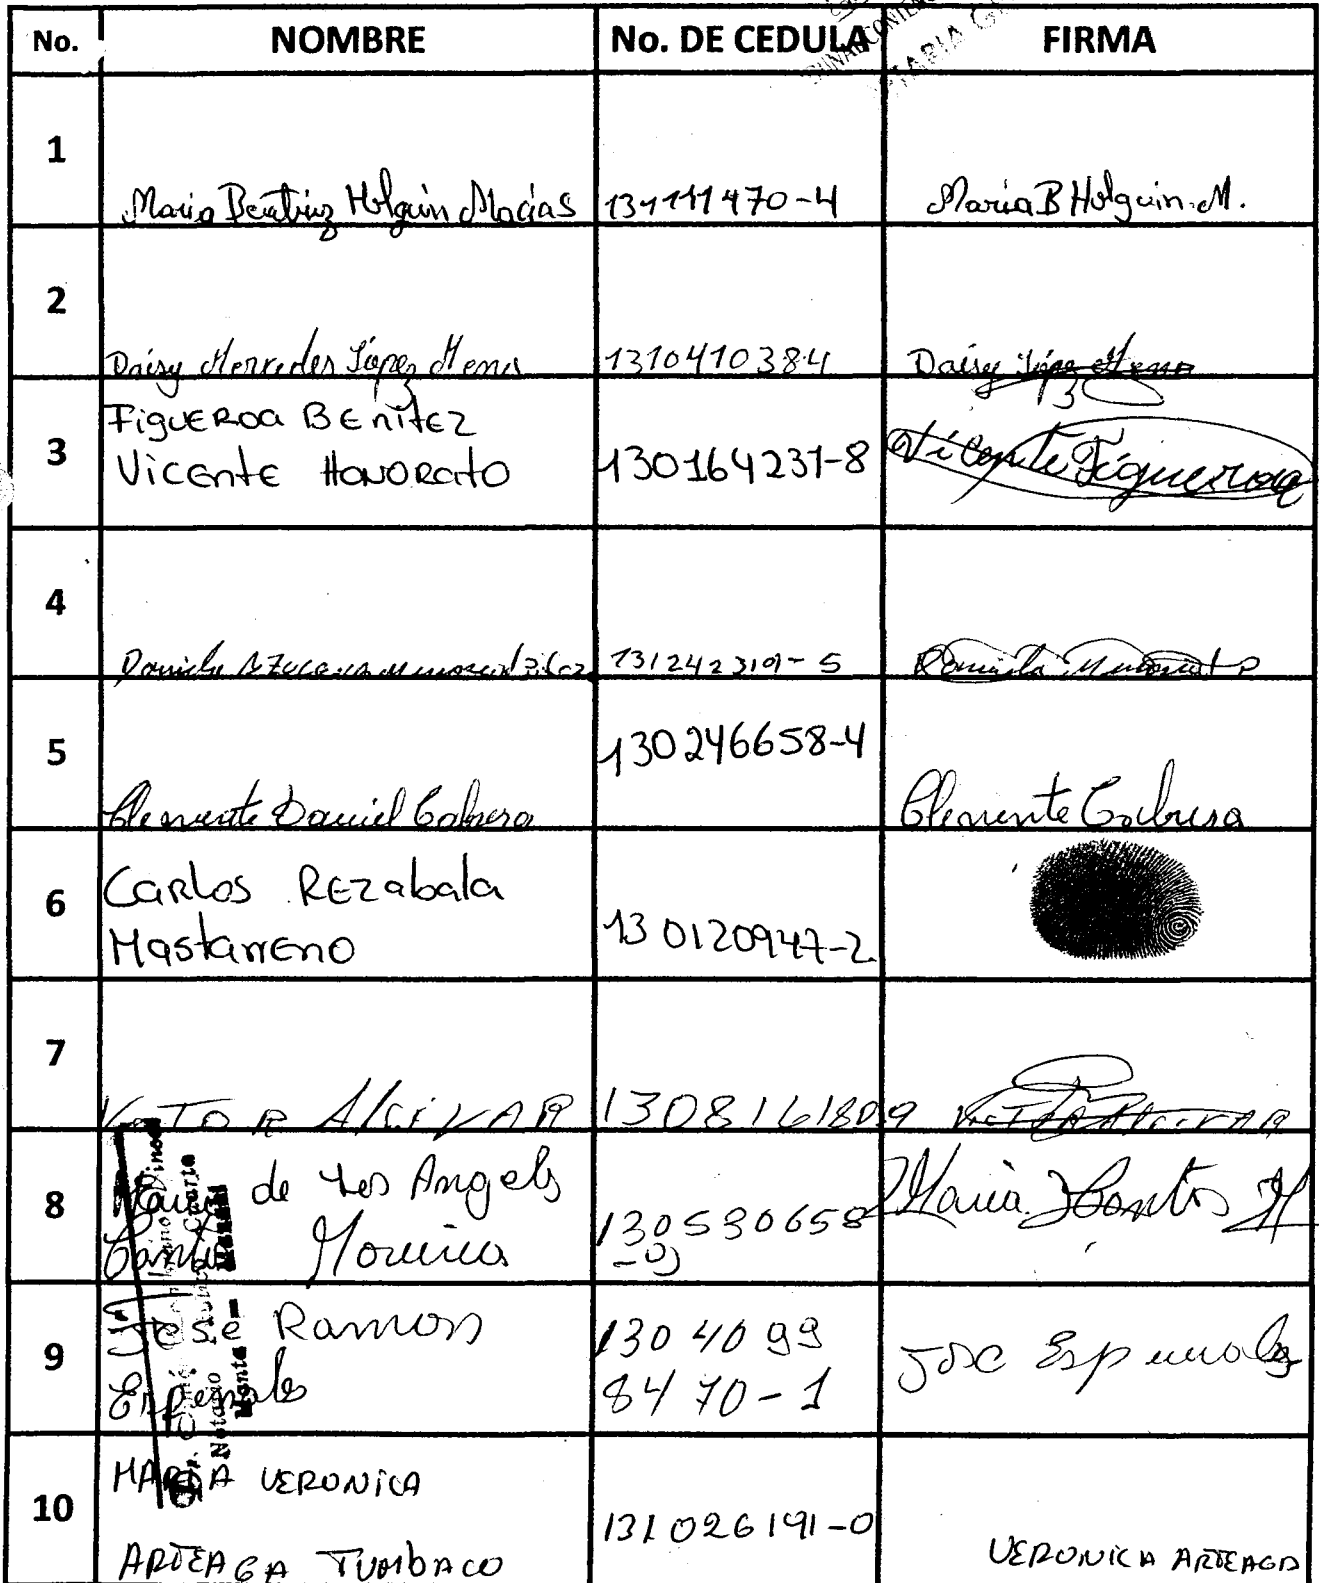 No. NOMBRE No. DE CEDULA FIRMA
1 Maria Beatriz Holguin Macias 131111470-4 Maria B Holguin. M.
2 Daisy Mercedes López Mena 1310410384 Daisy López Mena
3 FIGUEROA BENITEZ
VICENTE HONORATO 130164231-8 Vicente Figueroa
4 Daniela 131242319-5 Daniela
5 Clemente Daniel Cabrera 130246658-4 Clemente Cabrera
6 CARLOS REZabala
Mastarreno 130120947-2
7 VICTOR ALCIVAR 1308161809 VICTOR ALCIVAR
8 Maria de Los Angels
Moreira 130530658
-0 Maria Santos M
9 Jose Ramon
Espinales 1304099
8470-1 Jose Espinales
10 MARIA VERONICA
ARTEAGA TUMBACO 131026191-0 VERONICA ARTEAGA
Manta